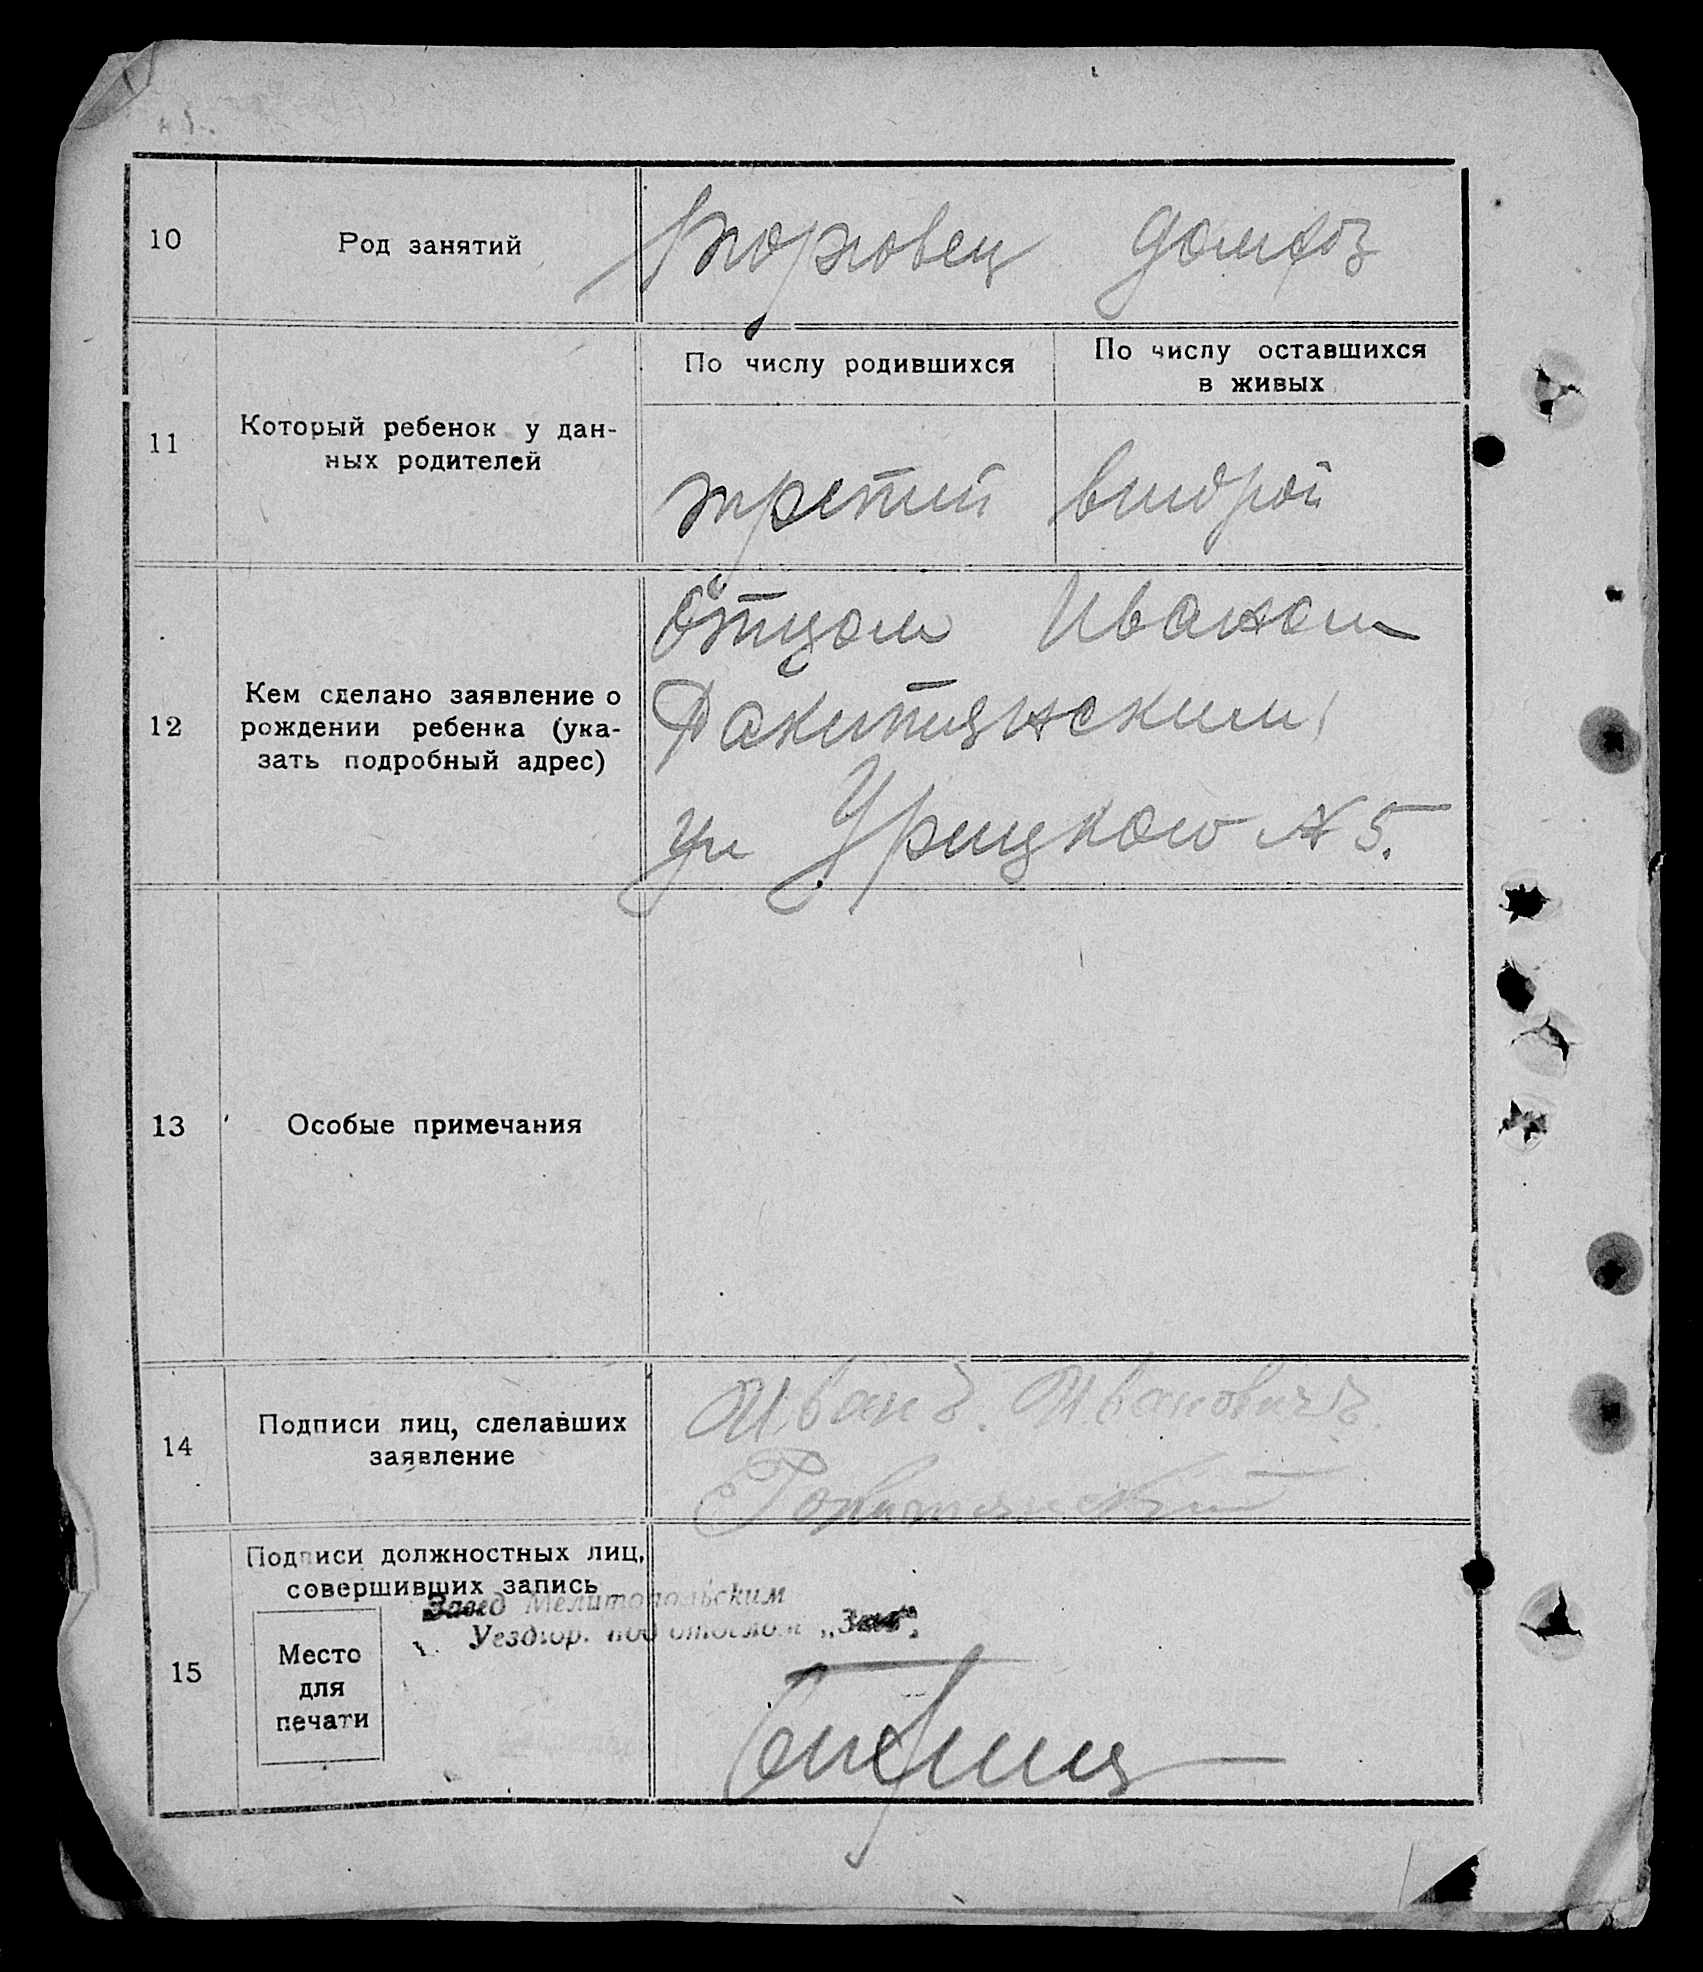 10
Род занятий
торговец домхоз
11
Который ребенок у дан-
ных родителей
По числу родившихся
По числу оставшихся
в живых
третий
второй
12
Кем сделано заявление о
рождении ребенка (ука-
зать подробный адрес)
Отцом Иваном
Ракитянским
ул Урицкого № 5.
13
Особые примечания
14
Подписи лиц, сделавших
заявление
Иванъ. Ивановичъ.
Ракитянский
15
Подписи должностных лиц,
совершивших запись
Место
для
печати
Завед Мелитопольским
Уездгор. под отделом „Загс“